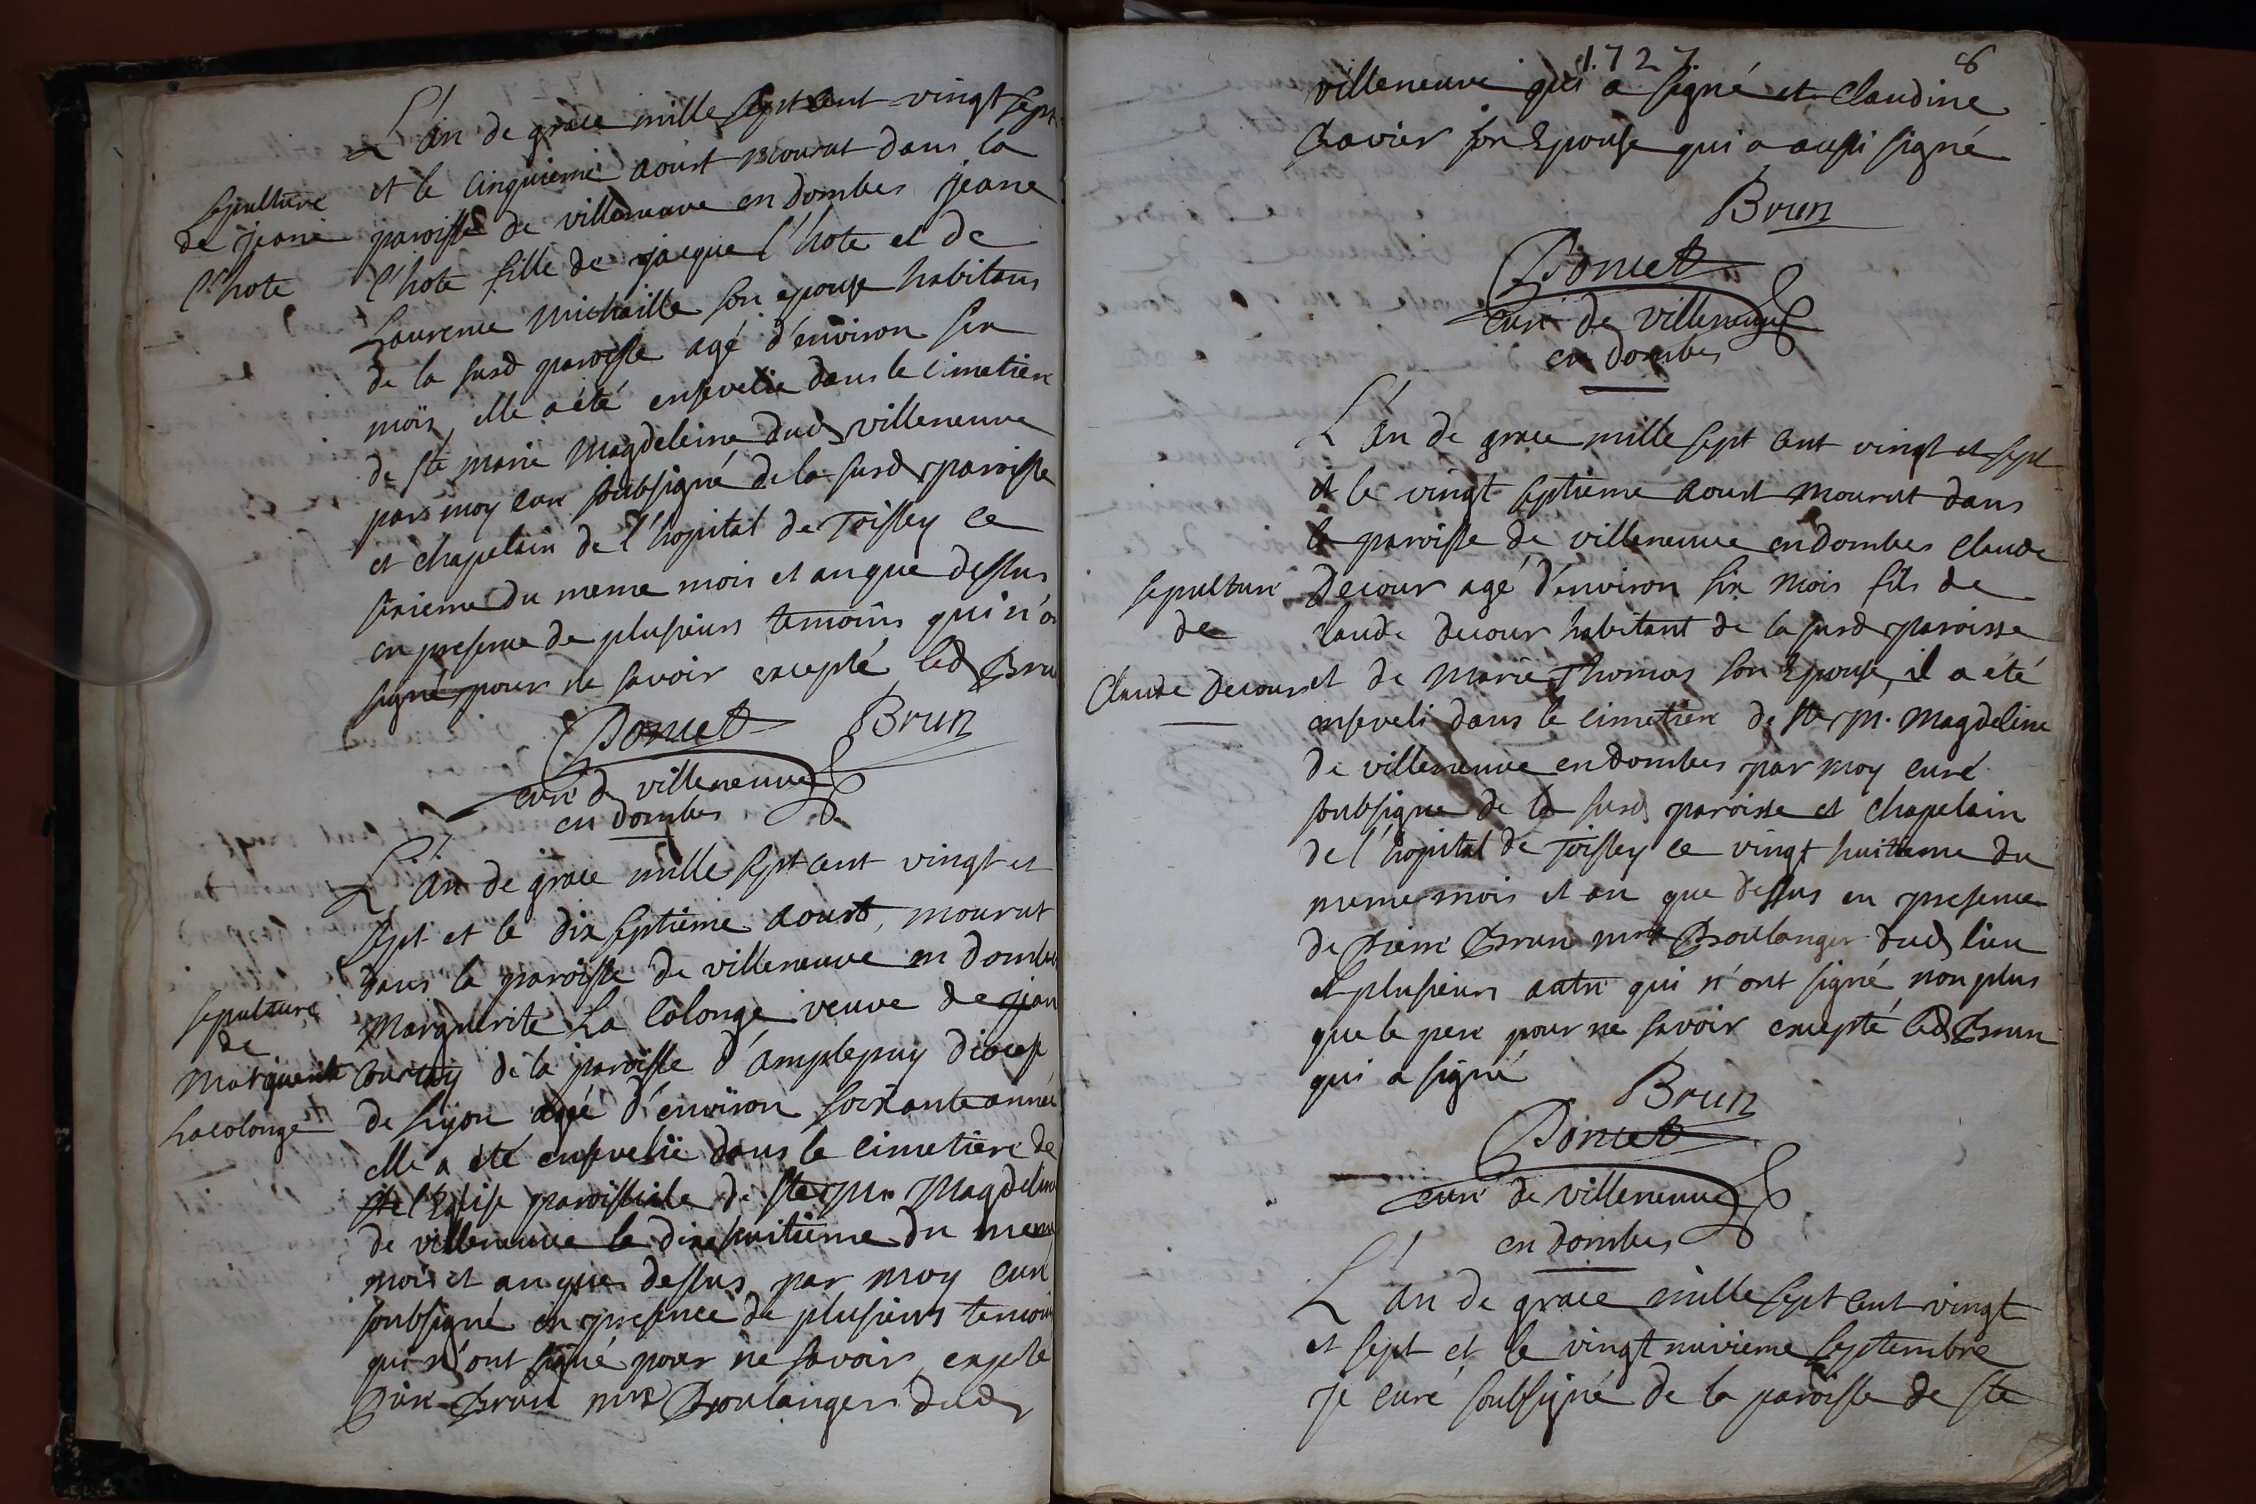 L'an de grace mille sept cent vingt sept
et le cinquieme aoust mourut dans la
sepulture
de jeane
l'hote
paroisse de villeneuve en dombes jeane
l'hote fille de jacque l'hote et de
Laurence michaille son epouse habitans
de la susd paroisse agé d'environ six
mois, elle a été ensevelie dans le cimetiere
de ste marie Magdeleine dud villeneuve
par moy curé soubsigné de la susd paroisse
et chapelain de l'hopital de Toissey ce
sixieme du meme mois et an que dessus
en presence de plusieurs temoins qui n'o
signé pour ne savoir excepté led Bru
Doncet Brun
curé de villeneuve
en dombes
L'an de grace mille sept cent vingt et
sept et le dix septieme aoust, mourut
dans la paroisse de villeneuve en dombes
sepulture
de
Marguerite
Lacolonge
Marguerite La Colonge veuve de jean
de la paroisse d'amplepuy dioces
de Lyon agé d'environ soixante année
elle a été ensevelie dans le cimetiere de
l'Eglise paroissiale de ste Magdeleine
de villeneuve le dix huitieme du meme
mois et an que dessus par moy curé
soubsigné en presence de plusieurs temoins
qui n'ont signé pour ne savoir, excepté
Pierre Brun mre Boulanger dud
1727. 8
villeneuve qui a signé et Claudine
Chavier son Epouse qui a aussi signé
Brun
Doncet
curé de villeneuve
en dombes
L'an de grace mille sept cent vingt et sept
et le vingt septieme aoust mourut dans
la paroisse de villeneuve en dombes Claude
sepulture
de
Claude Decour
Decour agé d'environ six mois fils de
Claude Decour habitant de la susd paroisse
et de Marie Thomas son Epouse, il a été
enseveli dans le cimetiere de ste M. Magdeleine
de villeneuve en dombes par moy curé
soubsigné de la susd paroisse et chapelain
de l'hopital de Toissey ce vingt huitieme du
meme mois et an que dessus en presence
de Pierre Brun mre Boulanger dud lieu
et plusieurs autre qui n'ont signé non plus
que le pere pour ne savoir excepté led Brun
qui a signé
Brun
Doncet
curé de villeneuve
en dombes
L'an de grace mille sept cent vingt
et sept et le vingt nuvieme septembre
je curé soubsigné de la paroisse de ste